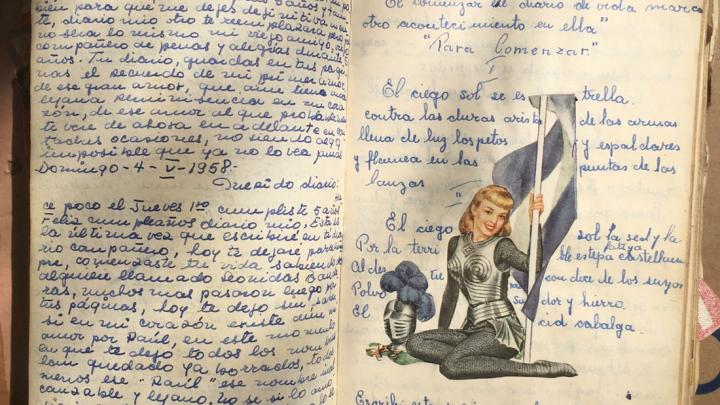 bién para que me dejes definitiva men
te, diario mio otro te reemplazará pero
no será lo mismo mi viejo amigo,
compañero de penas y alegrías durante
años. Tu diario, guardas en tus pági
nas el recuerdo de mi primer amor,
de ese gran amor, que aún tiene una
lejana reminisencia en mi cora
zón, de ese amor al que
te veré de ahora en adelante en
tantas ocasiones, no siendo
imposible que ya no lo vea jamás
Domingo - 4 - V - 1958 -
Querido diario:
Ha
ce poco el Jueves 1º cumpliste 5 años
Feliz cumpleaños diario mio. Esta es
la última vez que escribiré en ti dia
rio compañero, hoy te dejaré para siem
pre, comenzaste tu vida
alguien llamado Leonidas
muchos mas pasaron luego por
tus páginas, hoy te dejo sin saber
si en mi corazón existe aún
amor por Raúl, en este momento
en que te dejo todos los nombres
han quedado ya borrados, todos
menos ese "Raúl" ese nombre
canzable y lejano. No sé si lo amo
El comenzar el diario de vida marca
otro acontecimiento en ella"
"Para Comenzar"
I
El ciego sol se es trella
contra las duras arista de las armas
llena de luz los petos y espaldares
y flamea en las puntas de las
lanzas
II
El ciego sol, la sed y la
fatiga
Por la terri ble estepa castellana
Al des tie con doce de los suyos
Polvo Su dor y hierro
El cid cabalga.